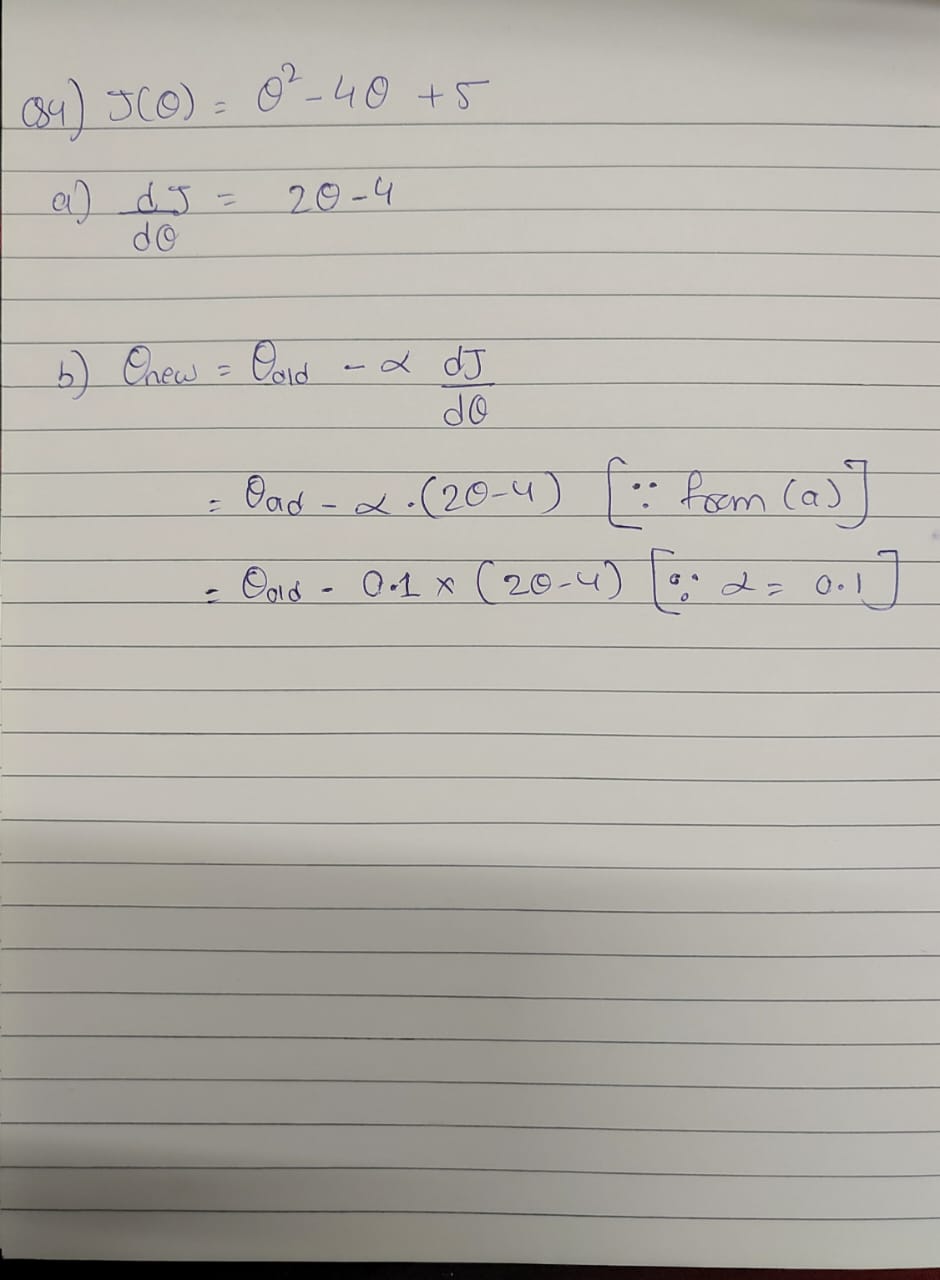 Q4) J(θ) = θ² - 4θ + 5
a) dJ/dθ = 2θ - 4
b) θnew = θold - α dJ/dθ
= θold - α . (2θ - 4) [∵ from (a)]
= θold - 0.1 × (2θ - 4) [∵ α = 0.1]